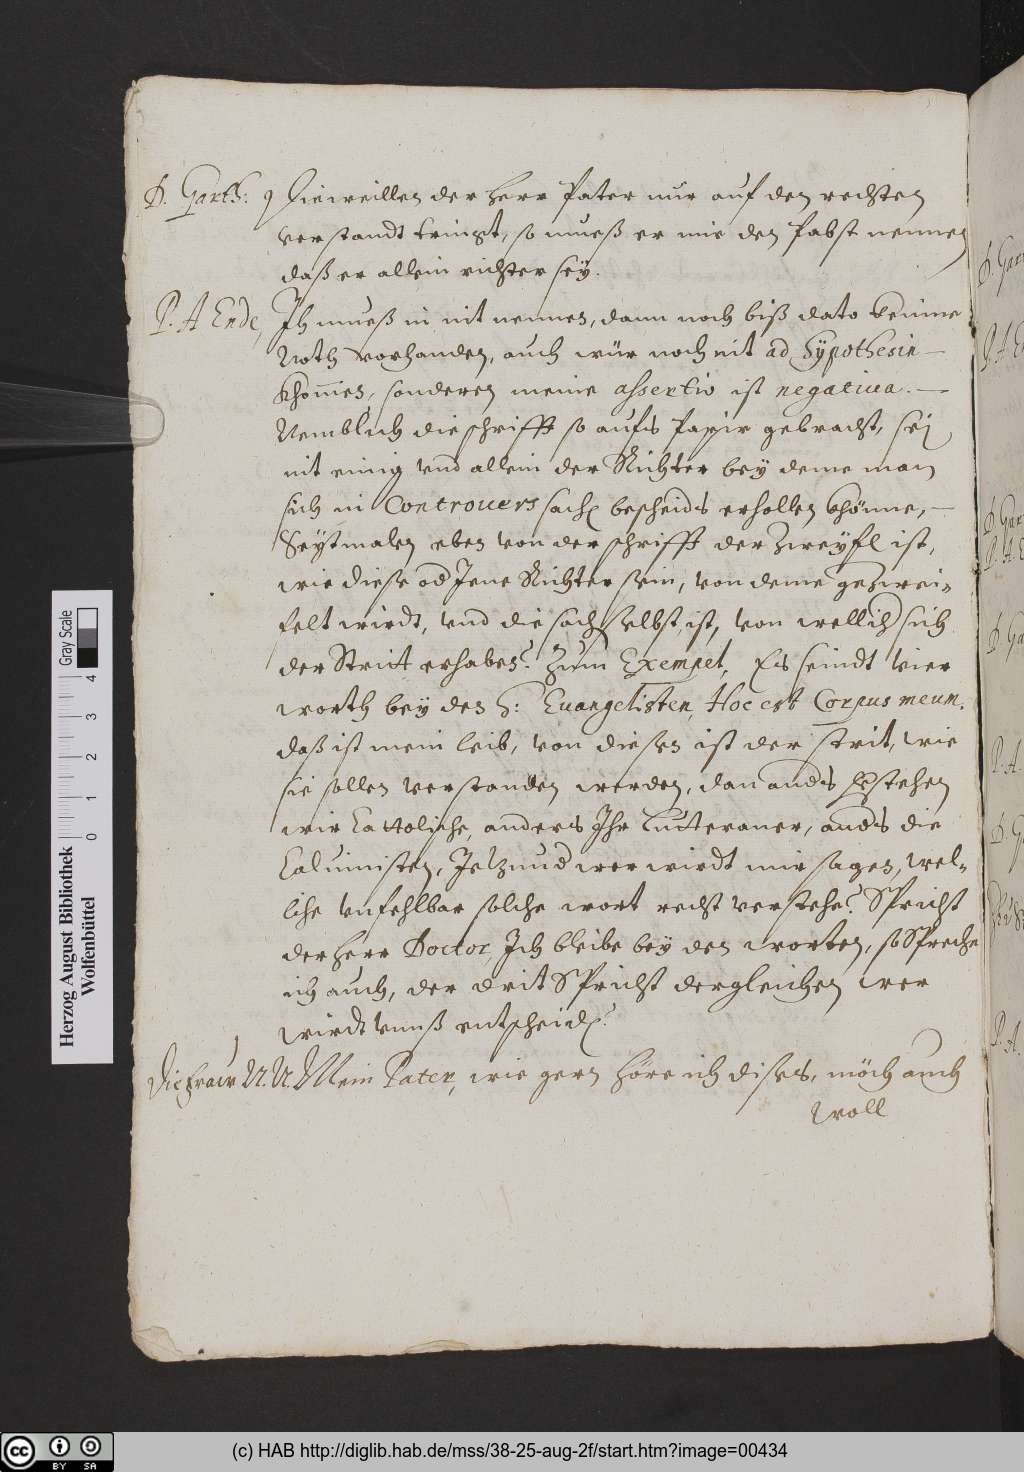 D. Garth: Dieweillen der Herr Pater nur auf den rechten
verstandt tringt, so mueß er mir den Pabst nennen
daß er allein richter sey.
P. A Ende, Ich mueß in nit nennen, dann noch biß dato keine
Noth vorhanden, auch wür noch nit ad Hÿpothesin
khom̄en, sonderen meine assertio ist negatiua.
Nemblich die schrifft so aufs Papir gebracht, seÿ
nit einig vnd allein der Richter beÿ deme man
sich in Controuers sach bescheids erhollen khönne,
Seÿtmalen eben von der schrifft der Zweÿfl ist,
wie diese od Jene Richter sein, von deme gezwei-
felt wirdt, vnd die sach selbst ist, von wellich sich
der Stritt erhaben? Zum Exempel, Es seindt vier
worth beÿ den H: Euangelisten, Hoc est Corpus meum.
daß ist mein leib, von diesen ist der strit, wie
sie sollen verstanden werden, dan anders verstehen
wir Cattolische, anders Ihr Lutteraner, anders die
Caluinisten, Jetzund wer wirdt mir sagen, wel-
che vnfehlbar solche wort recht verstehe? Spricht
der Herr Doctor, Ich bleibe beÿ den worten, so Spreche
ich auch, der drit Spricht dergleichen wer
wirdt vnnß entscheiden?
Die fraw N. N. Mein Pater, wie gern höre ich dises, möch auch
woll
D. Gar
Herzog August Bibliothek
Wolfenbüttel
Gray Scale
0 1 2 3 4
cc BY SA
(c) HAB http://diglib.hab.de/mss/38-25-aug-2f/start.htm?image=00434